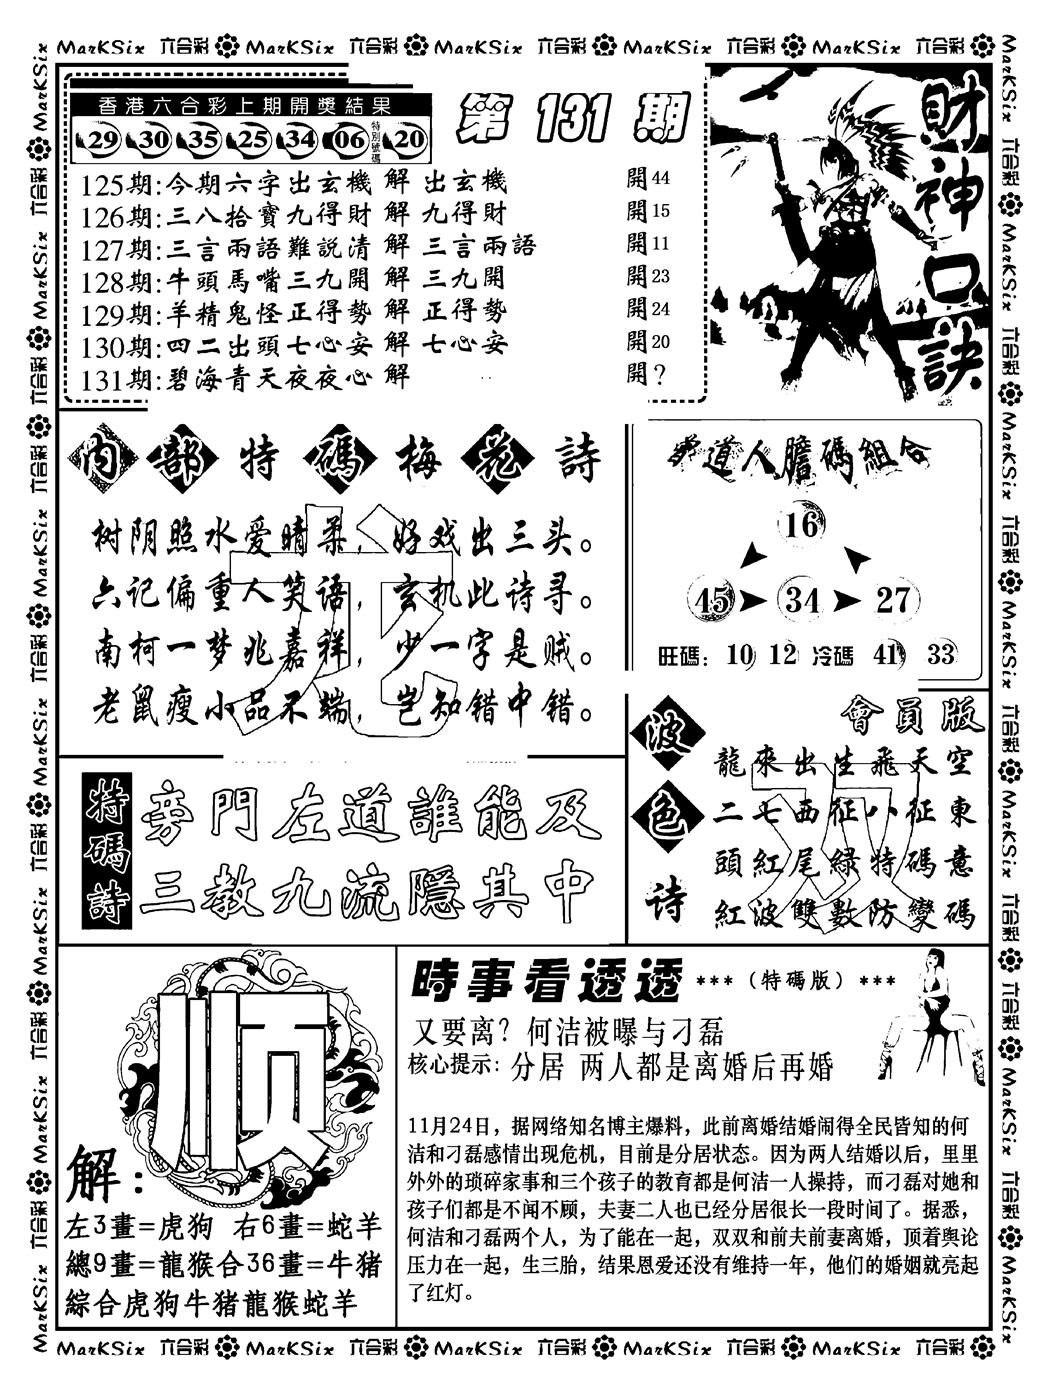 MarKSix 六合彩 MarKSix 六合彩 MarKSix 六合彩 MarKSix 六合彩 MarKSix 六合彩
香港六合彩上期開獎結果
29 30 35 25 34 06 特別號碼 20
第 131 期
125期:今期六字出玄機 解 出玄機 開44
126期:三八拾寶九得財 解 九得財 開15
127期:三言兩語難説清 解 三言兩語 開11
128期:牛頭馬嘴三九開 解 三九開 開23
129期:羊精鬼怪正得勢 解 正得勢 開24
130期:四二出頭七心安 解 七心安 開20
131期:碧海青天夜夜心 解 開?
財神口訣
內部特碼梅花詩
树阴照水爱晴柔，好戏出三头。
六记偏重人笑语，玄机此诗寻。
南柯一梦兆嘉祥，少一字是贼。
老鼠瘦小品不端，岂知错中错。
道人膽碼組合
16
45 34 27
旺碼: 10 12 冷碼 41 33
波色诗
會員版
龍來出生飛天空
二七西征八征東
頭紅尾綠特碼意
紅波雙數防變碼
特碼詩
旁門左道誰能及
三教九流隱其中
顺
解:
左3畫=虎狗 右6畫=蛇羊
總9畫=龍猴合36畫=牛猪
綜合虎狗牛猪龍猴蛇羊
時事看透透 ***（特碼版）***
又要离？何洁被曝与刁磊
核心提示: 分居 两人都是离婚后再婚
11月24日，据网络知名博主爆料，此前离婚结婚闹得全民皆知的何
洁和刁磊感情出现危机，目前是分居状态。因为两人结婚以后，里里
外外的琐碎家事和三个孩子的教育都是何洁一人操持，而刁磊对她和
孩子们都是不闻不顾，夫妻二人也已经分居很长一段时间了。据悉，
何洁和刁磊两个人，为了能在一起，双双和前夫前妻离婚，顶着舆论
压力在一起，生三胎，结果恩爱还没有维持一年，他们的婚姻就亮起
了红灯。
MarKSix 六合彩 MarKSix 六合彩 MarKSix 六合彩 MarKSix 六合彩 MarKSix 六合彩